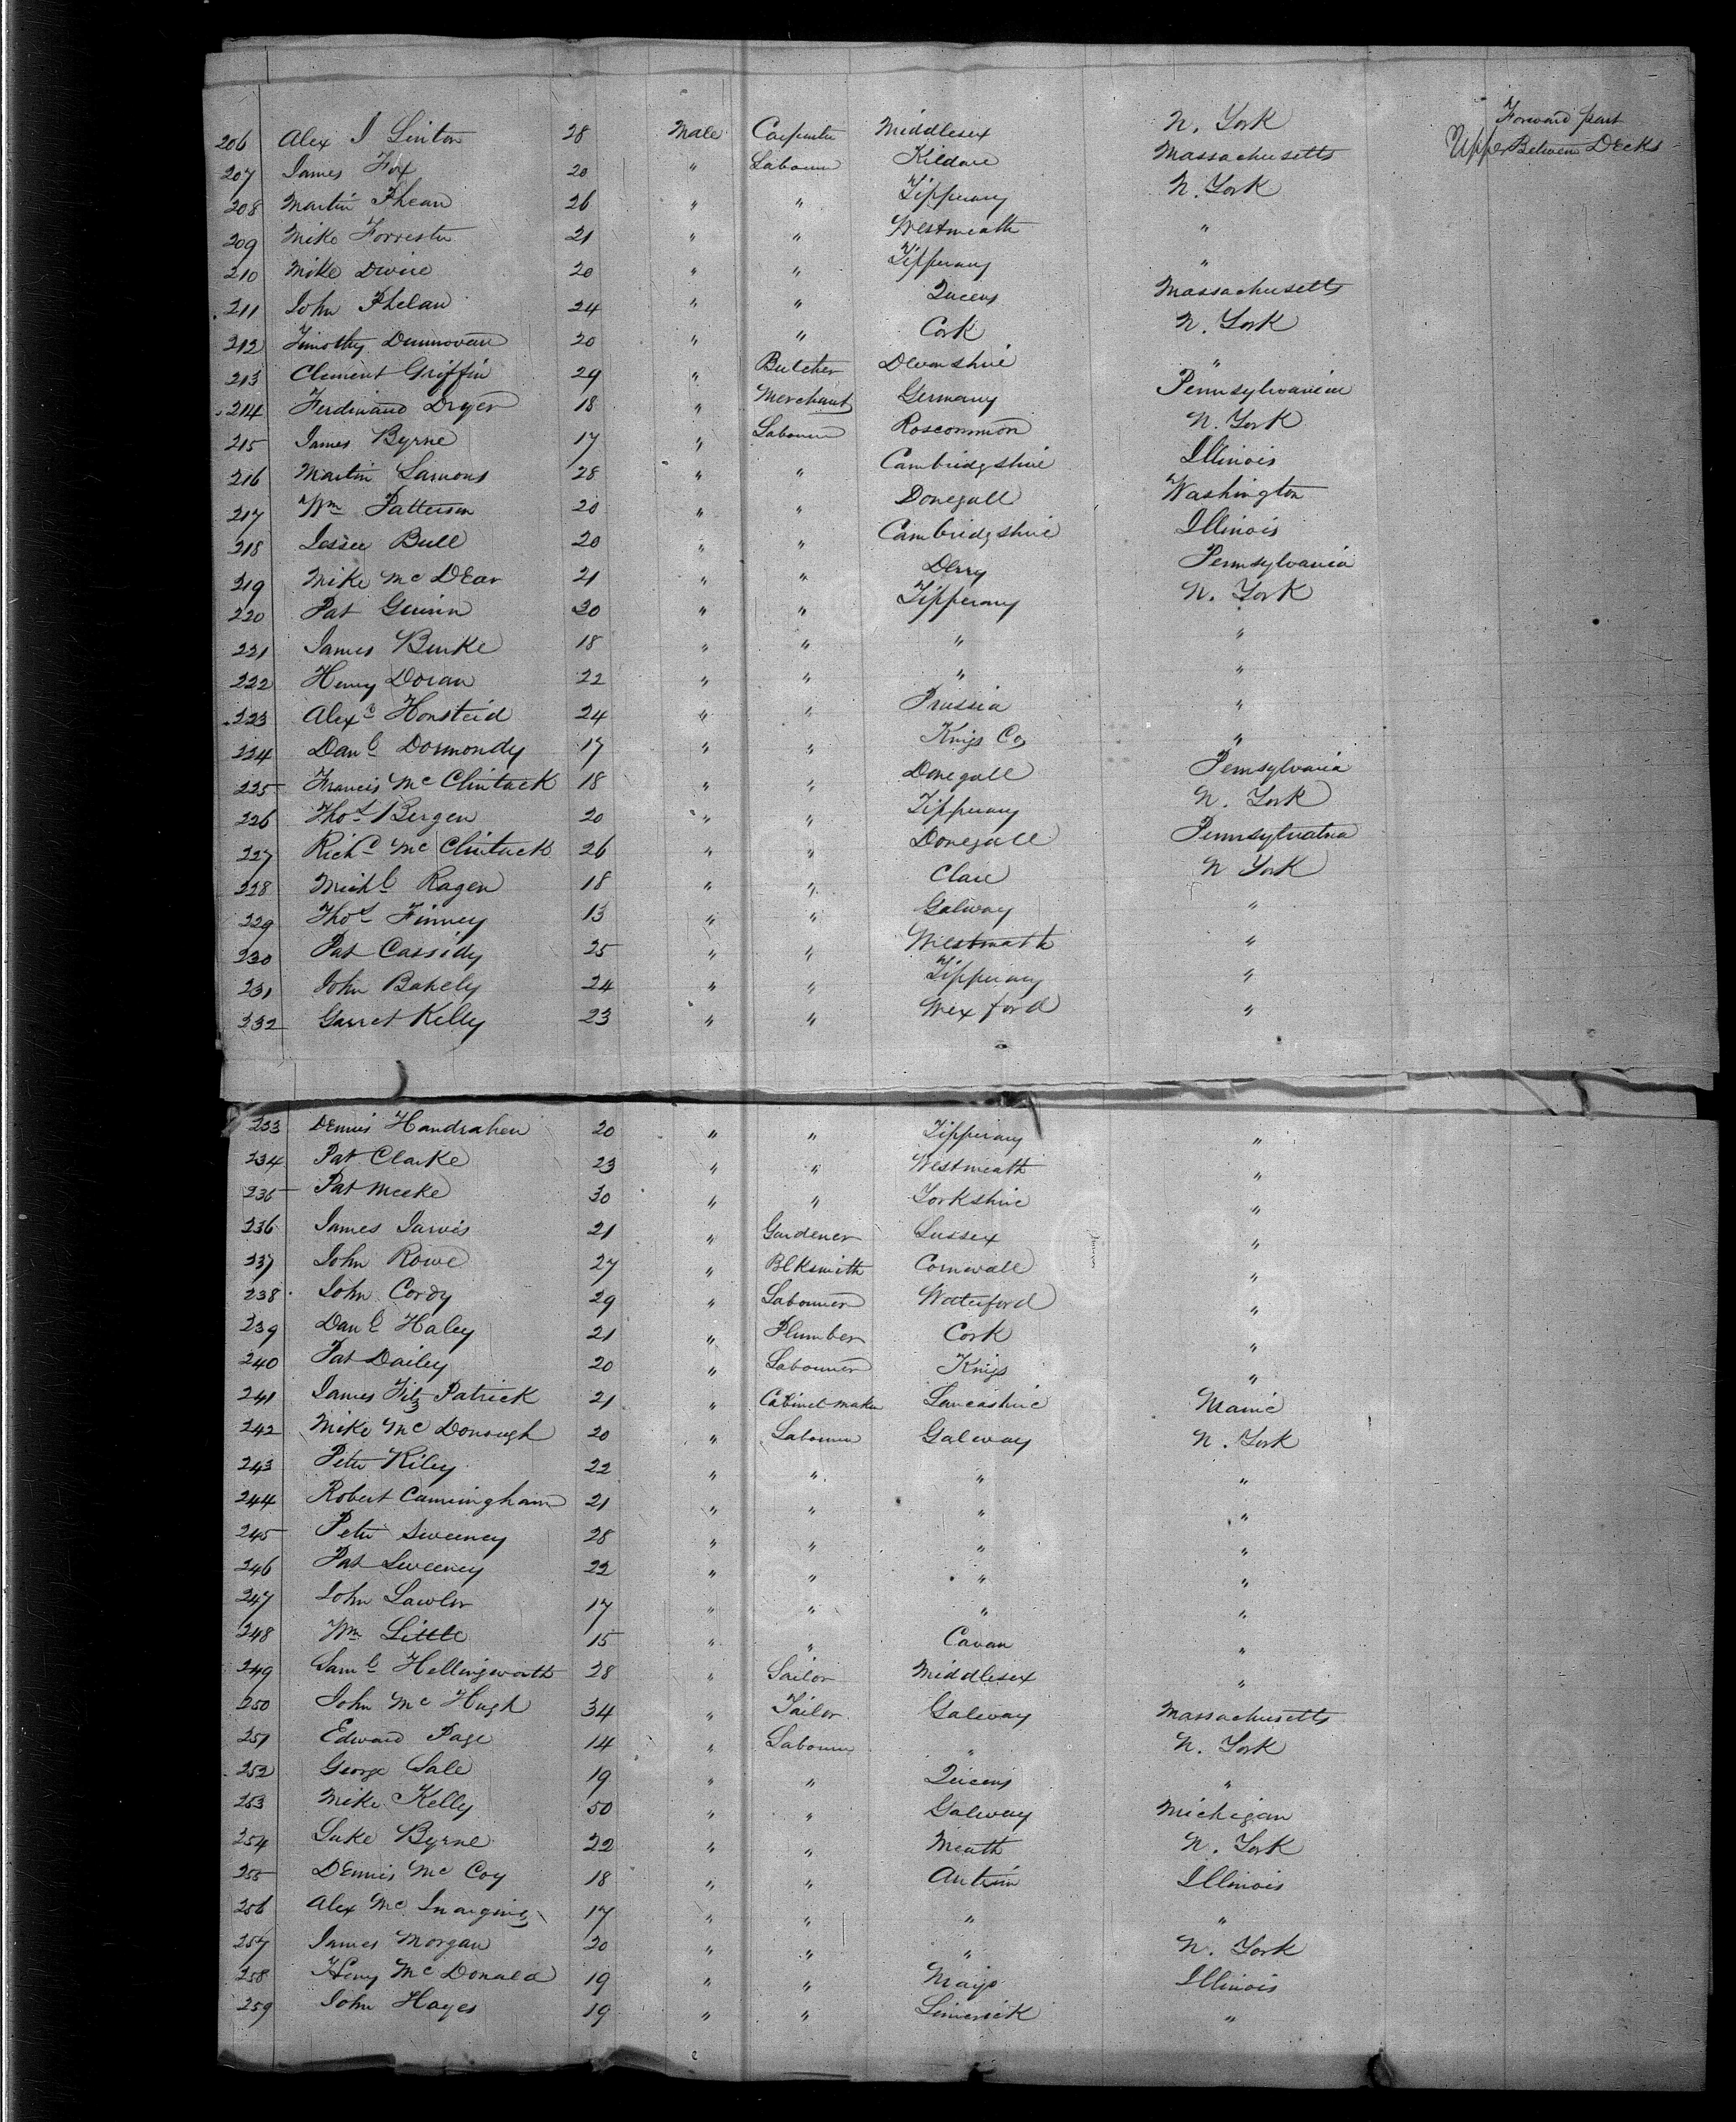 206 Alex J Linton 28 Male Carpenter Middlesex N. York Forward part
207 James Fox 20 " Labourer Kildare Massachusetts Upper Between Decks
208 Martin Phean 26 " " Tipperary N. York
209 Mike Forrester 21 " " Westmeath "
210 Mike Dwire 20 " " Tipperary "
211 John Phelan 24 " " Queens Massachusetts
212 Timothy Dunnovan 20 " " Cork N. York
213 Clement Griffin 29 " Butcher Devonshire "
214 Ferdinand Dryer 18 " Merchant Germany Pennsylvania
215 James Byrne 17 " Labourer Roscommon N. York
216 Martin Larnons 28 " " Cambridgshire Illinois
217 Wm Patterson 20 " " Donegall Washington
218 Jessee Bull 20 " " Cambridgshire Illinois
219 Mike Mc Dear 21 " " Derry Pennsylvania
220 Pat Guinn 30 " " Tipperary N. York
221 James Burke 18 " " " "
222 Henry Doran 22 " " " "
223 Alexr Honsteid 24 " " Prussia "
224 Danl Dormondy 17 " " Kings Co "
225 Francis Mc Clintack 18 " " Donegall Pennsylvania
226 Thos Bergen 20 " " Tipperary N. York
227 Richd Mc Clintack 26 " " Donegall Pennsylvatna
228 Michl Ragen 18 " " Clare N York
229 Thos Finney 13 " " Galway "
230 Pat Cassidy 25 " " Westmath "
231 John Bakely 24 " " Tipperary "
232 Garret Kelly 23 " " Wexford "
233 Dennis Handrahen 20 " " Tipperary "
234 Pat Clarke 23 " " Westmeath "
235 Pat Meeke 30 " " Yorkshire "
236 James Jarvis 21 " Gardener Sussex "
237 John Rowe 27 " Blksmith Cornwall "
238 John Cordy 29 " Labourer Waterford "
239 Danl Haley 21 " Plumber Cork "
240 Pat Dailey 20 " Labourer Kings "
241 James Fitz Patrick 21 " Cabinet maker Lancashire Maine
242 Mike Mc Donough 20 " Labourer Galway N. York
243 Peter Riley 22 " " " "
244 Robert Cunningham 21 " " " "
245 Peter Sweeney 28 " " " "
246 Pat Sweeney 22 " " " "
247 John Lawler 17 " " " "
248 Wm Little 15 " " Cavan "
249 Saml Hellingworth 28 " Sailor Middlesex "
250 John Mc Hugh 34 " Tailor Galway Massachusetts
251 Edward Page 14 " Labourer " N. York
252 George Sale 19 " " Queens "
253 Mike Kelly 50 " " Galway Michigan
254 Luke Byrne 22 " " Meath N. York
255 Dennis Mc Coy 18 " " Antrim Illinois
256 Alex Mc 17 " " " "
257 James Morgan 20 " " " N. York
258 Henry Mc Donald 19 " " Mayo Illinois
259 John Hayes 19 " " Limerick "